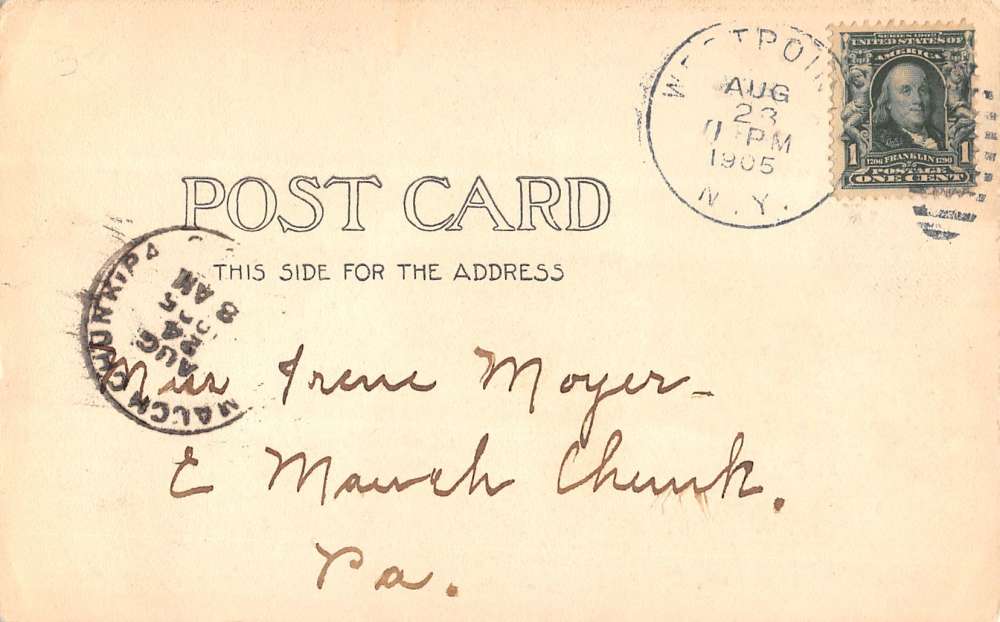 SERIES 1902
UNITED STATES OF
AMERICA
1706 FRANKLIN 1790
1 1
POSTAGE
ONE CENT
WESTPOINT
AUG
23
PM
1905
N.Y.
POST CARD
THIS SIDE FOR THE ADDRESS
MAUCH CHUNK, PA
AUG
24
8 AM
Miss Irene Moyer
E Mauch Chunk.
Pa.